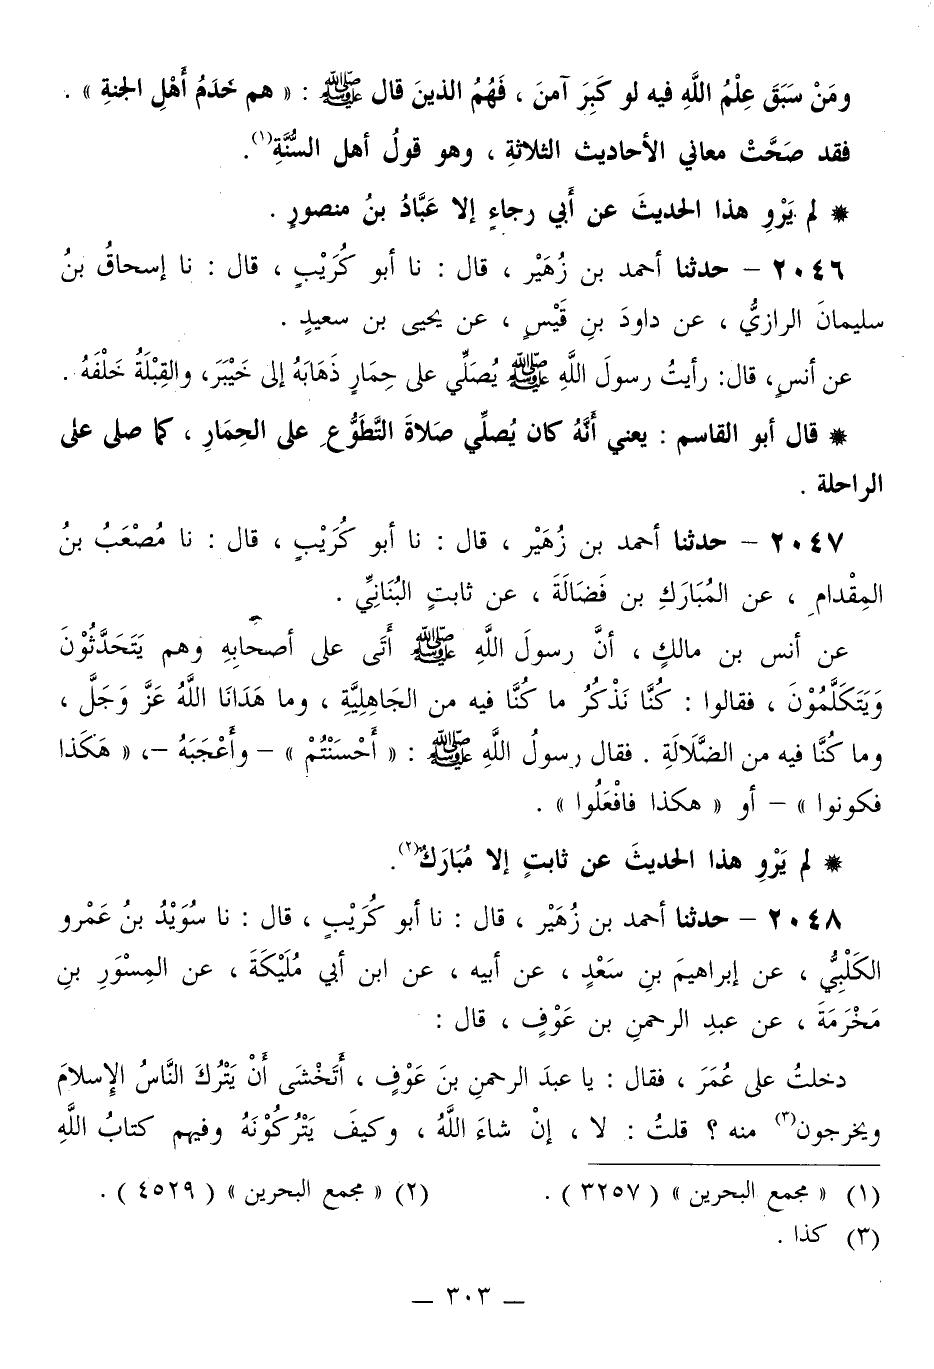 ومَنْ سَبَقَ عِلْمُ اللَّهِ فيه لو كَبِرَ آمنَ ، فَهُمُ الذينَ قال ﷺ : « هم خَدَمُ أَهْلِ الجنةِ » .
فقد صَحَّتْ معاني الأحاديث الثلاثةِ ، وهو قولُ أهل السُّنَّةِ(١).
* لم يَرْوِ هذا الحديثَ عن أبي رجاءٍ إلا عَبَّادُ بنُ منصورٍ .
٢٠٤٦ – حدثنا أحمد بن زُهَيْر ، قال : نا أبو كُرَيْبٍ ، قال : نا إسحاقُ بنُ
سليمانَ الرازيُّ ، عن داودَ بنِ قَيْسٍ ، عن يحيى بن سعيدٍ .
عن أنسٍ، قال: رأيتُ رسولَ اللَّهِ ﷺ يُصَلِّي على حِمَارٍ ذَهَابَهُ إلى خَيْبَرَ، والقِبْلَةُ خَلْفَهُ .
* قال أبو القاسم : يعني أَنَّهُ كان يُصلِّي صلاةَ التَّطَوُّعِ على الحِمَارِ ، كما صلى على
الراحلة .
٢٠٤٧ – حدثنا أحمد بن زُهَيْر ، قال : نا أبو كُرَيْبٍ ، قال : نا مُصْعَبُ بنُ
المِقْدامِ ، عن المُبَارَكِ بن فَضَالَةَ ، عن ثابتٍ البُنَانِيِّ .
عن أنس بن مالكٍ ، أنَّ رسولَ اللَّهِ ﷺ أَتَى على أصحابِهِ وهم يَتَحَدَّثُونَ
وَيَتَكَلَّمُوْنَ ، فقالوا : كُنَّا نَذْكُرُ ما كُنَّا فيه من الجَاهِلِيَّةِ ، وما هَدَانَا اللَّهُ عَزَّ وَجَلَّ ،
وما كُنَّا فيه من الضَّلَالَةِ . فقال رسولُ اللَّهِ ﷺ : « أَحْسَنْتُمْ » – وأَعْجَبَهُ –، « هَكَذا
فكونوا » – أو « هكذا فافْعَلُوا » .
* لم يَرْوِ هذا الحديثَ عن ثابتٍ إلا مُبَارَكٌ(٢).
٢٠٤٨ – حدثنا أحمد بن زُهَيْر ، قال : نا أبو كُرَيْبٍ ، قال : نا سُوَيْدُ بنُ عَمْرو
الكَلْبِيُّ ، عن إبراهيمَ بنِ سَعْدٍ ، عن أبيه ، عن ابن أبي مُلَيْكَةَ ، عن المِسْوَرِ بنِ
مَخْرَمَةَ ، عن عبدِ الرحمنِ بن عَوْفٍ ، قال :
دخلتُ على عُمَرَ ، فقال : يا عبدَ الرحمنِ بنَ عَوْفٍ ، أَتَخْشَى أَنْ يَتْرُكَ النَّاسُ الإِسلامَ
ويخرجون(٣) منه ؟ قلتُ : لا ، إنْ شاءَ اللَّهُ ، وكيفَ يَتْرُكُوْنَهُ وفيهم كتابُ اللَّهِ
(١) « مجمع البحرين » ( ٣٢٥٧ ) . (٢) « مجمع البحرين » ( ٤٥٢٩ ) .
(٣) كذا .
– ٣٠٣ –